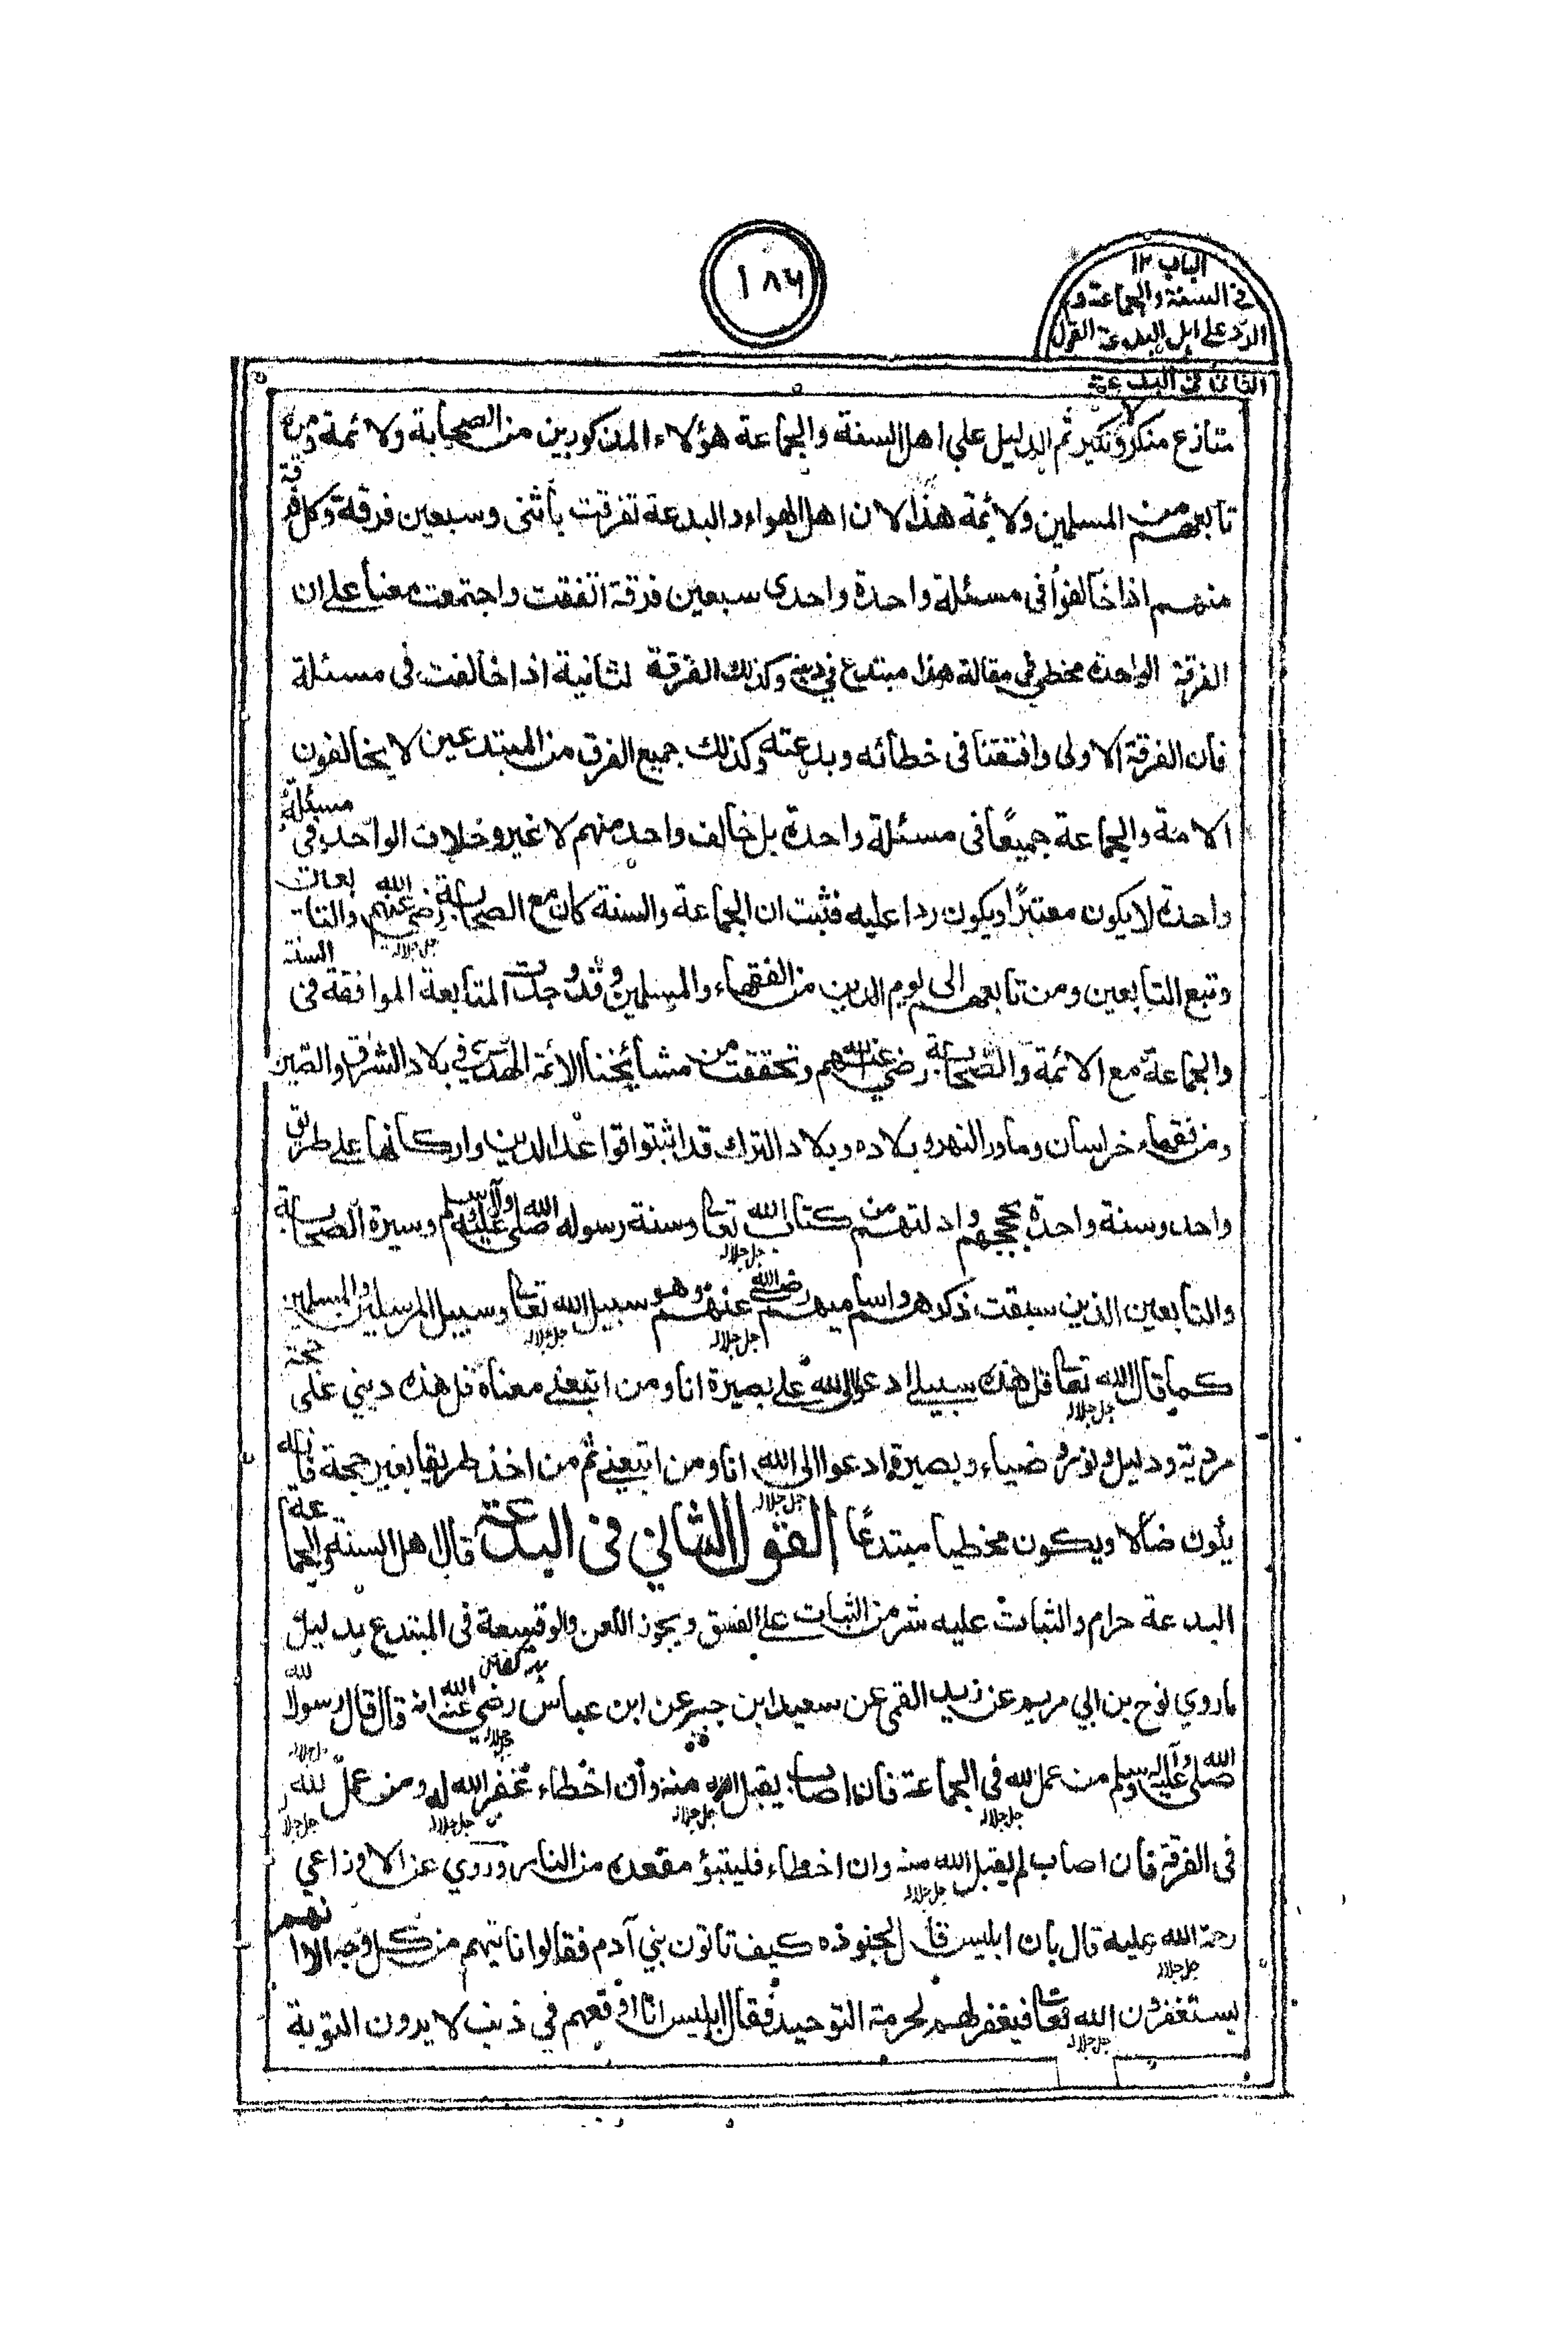 ١٨٦
الباب ١٢
في السنة والجماعة و
الرد على اهل البدعة القول
الثانى فى البدعة
متنازع منكر ونكير ثم الدليل على اهل السنة والجماعة هؤلاء المذكورين من الصحابة ولائمة ومن
تابعهم من المسلمين ولائمة هذا لان اهل الهواء والبدعة تفرقت بأثنى وسبعين فرقة وكل فرقة
منهم اذا خالفوا فى مسئلة واحدة واحدى سبعين فرقة اتفقت واجتمعت معنا على ان
الفرقة الواحدة مخطي في مقالة هذا مبتدع في دينه وكذلك الفرقة لثانية اذا خالفت فى مسئلة
فان الفرقة الاولى وافتقتنا فى خطائه وبدعته وكذلك جميع الفرق من المبتدعين لا يخالفون
الامة والجماعة جميعًا فى مسئلة واحدة بل خالف واحد منهم لا غير وخلاف الواحد في مسئلة
واحدة لا يكون معتبرًا ويكون ردا عليه فثبت ان الجماعة والسنة كان مع الصحابة رضي الله عنهم والتابعين
وتبع التابعين ومن تابعهم الى يوم الدين من الفقهاء والمسلمين وقد وجدت المتابعة الموافقة فى السنة
والجماعة مع الائمة والصحابة رضي الله عنهم وتحققت من مشائخنا الائمة الهدى في بلاد الشرق والصين
ومن فقهاء خراسان وماور النهر و بلاده وبلاد الترك قد اثبتوا قواعد الدين واركانها على طريق
واحد وسنة واحدة بحججهم وادلتهم من كتاب الله تعا جل جلاله وسنة رسوله صلى الله عليه وآله وسلم وسيرة الصحابة
والتابعين الذين سبقت ذكرهم واساميهم رضي الله عنهم جل جلاله وهو سبيل الله تعا جل جلاله وسبيل المرسلين والمسلمين
كما قال الله تعا جل جلاله قل هذه سبيلى ادعوا الى الله على بصيرة انا ومن اتبعنى معناه قل هذه ديني على حجة
مردية ودليل ونور و ضياء وبصيرة ادعوا الى الله جل جلاله انا ومن اتبعني ثم من اخذ طريقا بغير حجة فانه
يكون ضالا ويكون مخطيا مبتدعًا القول الثاني فى البدعة قال اهل السنة والجماعة
البدعة حرام والثبات عليه شر من الثبات على الفسق ويجوز اللعن والوقيعة فى المبتدع بدليل
ماروي نوح بن ابي مريم عن زيد القمى عن سعيد ابن جبير عن ابن عباس رضي الله عنه جل جلاله انه قال قال رسول الله جل جلاله
صلى الله عليه وآله وسلم من عمل لله فى الجماعة جل جلاله فان اصاب يقبل الله جل جلاله منه وان اخطاء غفر الله جل جلاله له ومن عمل لله جل جلاله
فى الفرقة فان اصاب لم يقبل الله جل جلاله منه وان اخطاء فليتبؤ مقعده من الناس وروي عن الاوزاعي
رحمة الله جل جلاله عليه قال بان ابليس قال لجنوده كيف تاتون بني آدم فقالوا ناتيهم من كل وجه الا انهم
يستغفرون الله تعا جل جلاله فيغفر لهم لحرمة التوحيد فقال ابليس انا اوقعهم في ذنب لا يرون التوبة